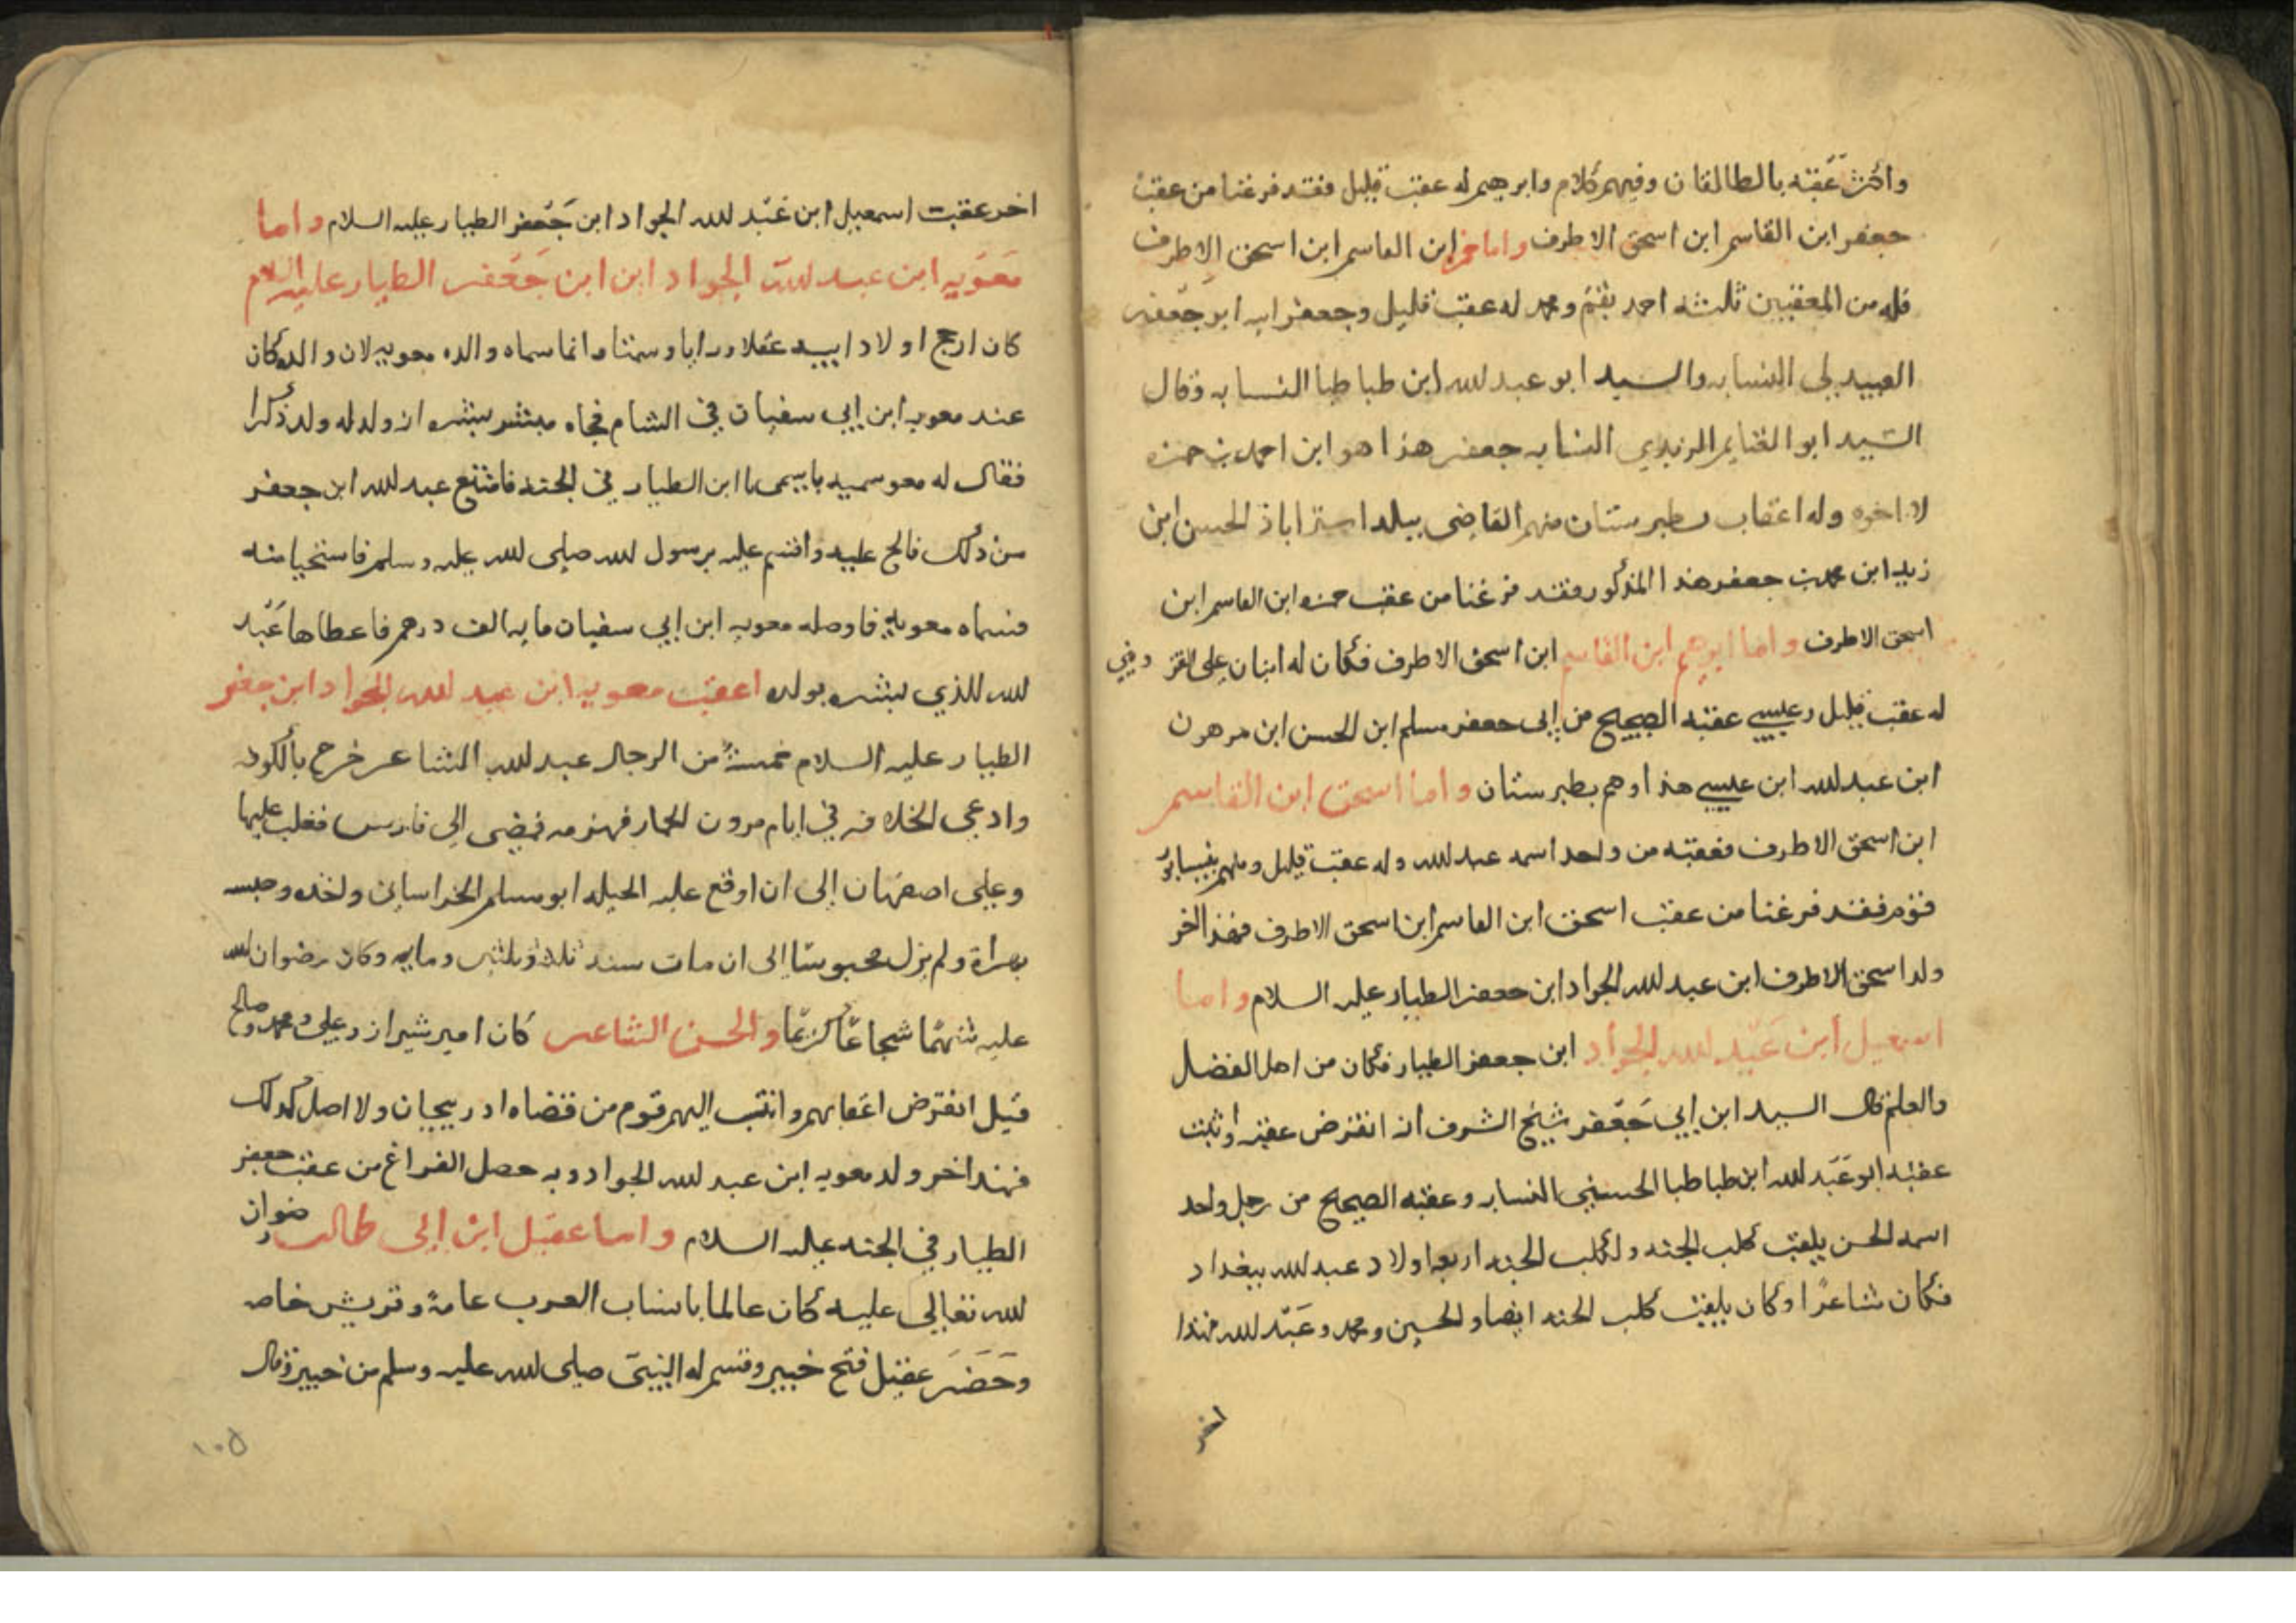 واكثر عقبه بالطالقان وفيهم كلام وابرهيم له عقب قليل فقد فرغنا من عقب
جعفر ابن القاسم ابن اسحق الاطرف واما حمزه ابن القاسم ابن اسحق الاطرف
فله من المعقبين ثلثه احمد بقم ومحمد له عقب قليل وجعفر ابو جعفر
العبيدلي النسابه والسيد ابو عبد الله ابن طباطبا النسابه وقال
السيد ابو الغنايم الزيدي النسابه جعفر هذا هو ابن احمد بن حمزه
لا اخوه وله اعقاب بطبرستان منهم القاضى ببلد استراباذ الحسن ابن
زيد ابن محمد بن جعفر هذا المذكور فقد فرغنا من عقب حمزه ابن القاسم ابن
اسحق الاطرف واما ابرهيم ابن القاسم ابن اسحق الاطرف فكان له ابنان علي
له عقب قليل وعيسي عقبه الصحيح من ابى جعفر مسلم ابن الحسن ابن مرهون
ابن عبد الله ابن عيسي هذا وهم بطبرستان واما اسحق ابن القاسم
ابن اسحق الاطرف فعقبه من واحد اسمه عبد الله وله عقب قليل ومنهم بنيسابور
قوم فقد فرغنا من عقب اسحق ابن القاسم ابن اسحق الاطرف فهذا اخر
ولد اسحق الاطرف ابن عبد الله الجواد ابن جعفر الطيار عليه السلام واما
اسمعيل ابن عبد الله الجواد ابن جعفر الطيار فكان من اهل الفضل
والعلم قال السيد ابن ابي جعفر شيخ الشرف انه انقرض عقبه واثبت
عقبه ابو عبد الله ابن طباطبا الحسيني النسابه وعقبه الصحيح من رجل واحد
اسمه الحسن يلقب كلب الجنه ولكلب الجنه اربعه اولاد عبد الله ببغداد
فكان شاعرا وكان يلقب كلب الجنه ايضا والحسين ومحمد وعبد الله فهذا
اخر
اخر عقب اسمعيل ابن عبد الله الجواد ابن جعفر الطيار عليه السلام واما
معويه ابن عبد الله الجواد ابن ابن جعفر الطيار عليه السلام
كان ارجح اولاد ابيه عقلا ورايا وسمتا وانما سماه والده معويه لان والده كان
عند معويه ابن ابي سفيان في الشام فجاه مبشر يبشره ان ولد له ولد ذكرا
فقال له معو سميه باسمى يا ابن الطيار في الجنه فامتنع عبد الله ابن جعفر
من ذلك فالح عليه واقسم عليه برسول الله صلى الله عليه وسلم فاستحيا منه
فسماه معويه فاوصله معويه ابن ابي سفيان مايه الف درهم فاعطاها عبد
الله للذي بشره بولده اعقب معويه ابن عبد الله الجواد ابن جعفر
الطيار عليه السلام خمسة من الرجال عبد الله الشاعر خرج بالكوفه
وادعى الخلافه في ايام مرون الحمار فهزمه فمضى الى فارس فغلب عليها
وعلى اصفهان الى ان اوقع عليه الحيله ابو مسلم الخراساني واخذه وحبسه
بهراة ولم يزل محبوسا الى ان مات سنه ثلاث وثلثين ومايه وكان رضوان الله
عليه شهما شجاعا كريما والحسن الشاعر كان امير شيراز وعلي ومحمد وصالح
قيل انقرض اعقابهم وانتسب اليهم قوم من قضاه ادربيجان ولا اصل لذلك
فهذا اخر ولد معويه ابن عبد الله الجواد وبه حصل الفراغ من عقب جعفر
الطيار في الجنه عليه السلام واما عقيل ابن ابى طالب رضوان
الله تعالي عليه كان عالما بانساب العرب عامة وقريش خاصه
وحضر عقيل فتح خيبر وقسم له النبي صلى الله عليه وسلم من خيبر وقال
١٠٥